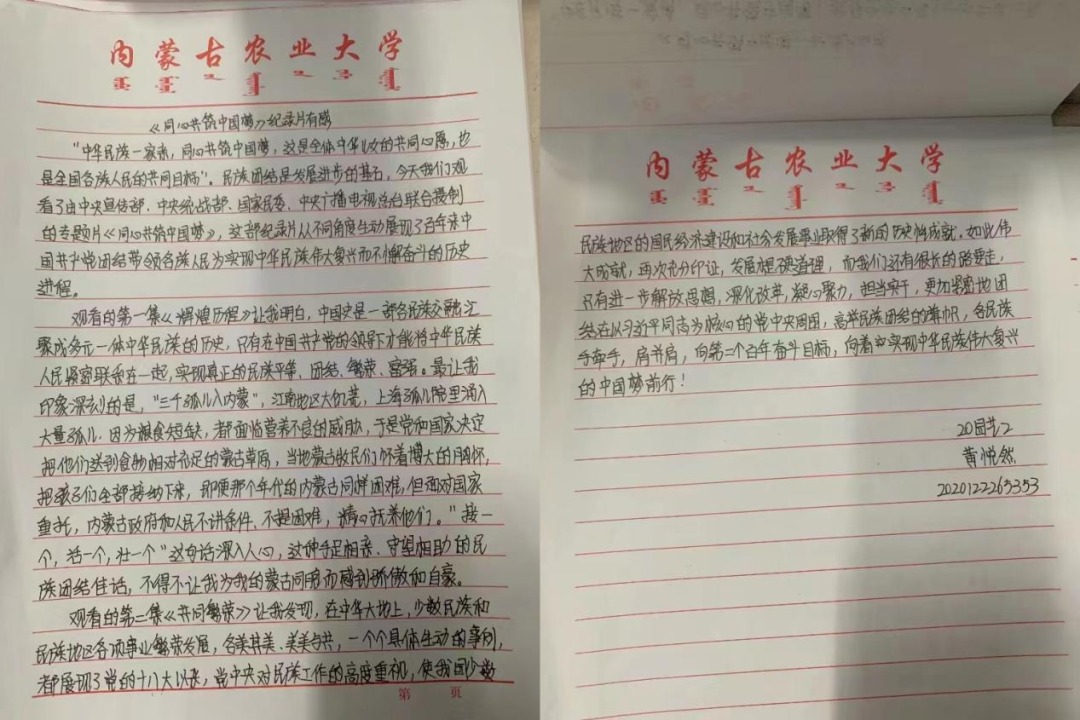 内蒙古农业大学
《同心共筑中国梦》纪录片有感
“中华民族一家亲，同心共筑中国梦，这是全体中华儿女的共同心愿，也
是全国各族人民的共同目标”。民族团结是发展进步的基石，今天我们观
看了由中央宣传部、中央统战部、国家民委、中央广播电视总台联合摄制
的专题片《同心共筑中国梦》，这部纪录片从不同角度生动展现了百年来中
国共产党团结带领各族人民为实现中华民族伟大复兴而不懈奋斗的历史
进程。
观看的第一集《辉煌历程》让我明白，中国史是一部各民族交融汇
聚成多元一体中华民族的历史，只有在中国共产党的领导下才能将中华民族
人民紧密联系在一起，实现真正的民族平等、团结、繁荣、富强。最让我
印象深刻的是，“三千孤儿入内蒙”，江南地区大饥荒，上海孤儿院里涌入
大量孤儿，因为粮食短缺，都面临营养不良的威胁，于是党和国家决定
把他们送到食物相对充足的蒙古草原，当地蒙古牧民们怀着博大的胸怀，
把孩子们全部接纳下来，即便那个年代的内蒙古同样困难，但面对国家
重托，内蒙古政府和人民不讲条件、不提困难，精心抚养他们。“接一
个，活一个，壮一个”这句话深入人心，这种手足相亲、守望相助的民
族团结佳话，不得不让我为我的蒙古同胞而感到骄傲和自豪。
观看的第二集《共同繁荣》让我发现，在中华大地上，少数民族和
民族地区各项事业繁荣发展，各美其美、美美与共，一个个具体生动的事例，
都展现了党的十八大以来，党中央对民族工作的高度重视，使我国少数
第 页
内蒙古农业大学
民族地区的国民经济建设和社会发展事业取得了新的历史性成就。如此伟
大成就，再次充分印证，发展是硬道理，而我们还有很长的路要走，
只有进一步解放思想，深化改革，凝心聚力，担当实干，更加紧密地团
结在以习近平同志为核心的党中央周围，高举民族团结的旗帜，各民族
手牵手，肩并肩，向第二个百年奋斗目标，向着实现中华民族伟大复兴
的中国梦前行！
20园艺2
黄悦然
2020122265353